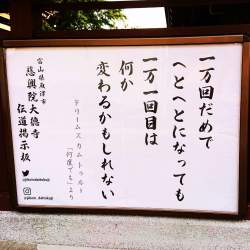 一万回だめで
へとへとになっても
一万一回目は
何か
変わるかもしれない
ドリームズカムトゥルー
「何度でも」より
富山県魚津市
慈興院大徳寺
伝道掲示板